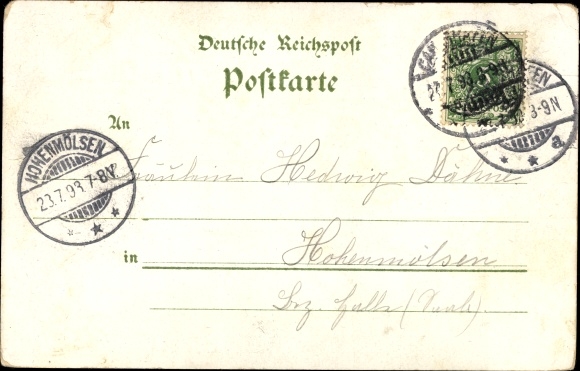 Deutsche Reichspost
Postkarte
An
Fräulein Hedwig Dähne
in Hohenmölsen
Bez. Halle (Saale).
HOHENMÖLSEN
23.7.98.7-8N.